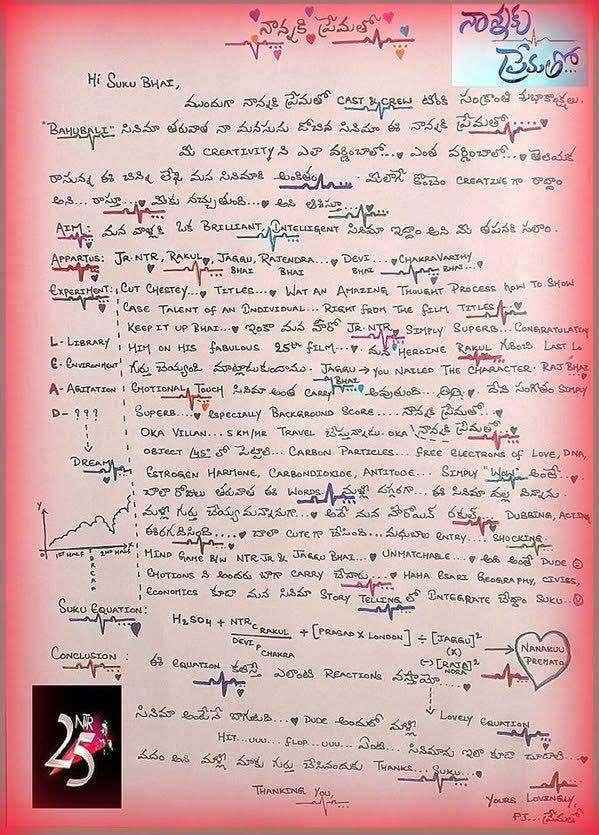 నాన్నకి ప్రేమతో
నాన్నకు
ప్రేమతో...
Hi Suku Bhai,
ముందుగా నాన్నకి ప్రేమతో CAST & CREW టీంకి సంక్రాంతి శుభాకాంక్షలు.
"BAHUBALI" సినిమా తరువాత నా మనసును దోచిన సినిమా ఈ నాన్నకి ప్రేమతో...
మీ CREATIVITY ని ఎలా వర్ణించాలో... ఎంత వర్ణించాలో... తెలియక
రాస్తున్న ఈ చిన్ని లేఖ మన సినిమాకి అంకితం. మీలాగే కొంచెం CREATIVE గా రాద్దాం
అని... రాస్తూ... మీకు నచ్చుతుంది... అని ఆశిస్తూ...
AIM: మన వాళ్ళకి ఒక BRILLIANT, INTELLIGENT సినిమా ఇద్దాం అని మీ తపనకి సలాం.
APPARTUS: JR.NTR, RAKUL, JAGGU, RAJENDRA... DEVI... CHAKRAVARTHY
BHAI BHAI BHAI BHAI...
EXPERIMENT: CUT CHESTEY... TITLES... WAT AN AMAZING THOUGHT PROCESS HOW TO SHOW
CASE TALENT OF AN INDIVIDUAL... RIGHT FROM THE FILM TITLES...
KEEP IT UP BHAI... ఇంకా మన హీరో JR.NTR, SIMPLY SUPERB... CONGRATULATING
L - LIBRARY
HIM ON HIS FABULOUS 25th FILM... మన HEROINE RAKUL గురించి LAST లో
E - ENVIRONMENT
గుర్తు చెయ్యండి మాట్లాడుకుందాము. JAGGU → YOU NAILED THE CHARACTER. RAJ BHAI
BHAI
A - AGITATION
EMOTIONAL TOUCH సినిమా అంత CARRY అవుతుంది... దేవి సంగీతం SIMPLY
D - ???
SUPERB... ESPECIALLY BACKGROUND SCORE.... నాన్నకు ప్రేమతో...
OKA VILLAN... 5 KM/HR TRAVEL చేస్తున్నాడు. OKA నాన్నకి ప్రేమతో...
OBJECT 45° లో పెట్టారు. CARBON PARTICLES... FREE ELECTRONS OF LOVE, DNA,
DREAM
ESTROGEN HARMONE, CARBONDIOXIDE, ANTITODE... SIMPLY "WOW" అంతే.
చాలా రోజులు తరువాత ఈ WORDS మళ్ళీ దగ్గరగా... ఈ సినిమా వల్ల విన్నాను.
Y
మళ్ళీ గుర్తు చేయ్యమన్నానుగా... అదే మన హీరోయిన్ రకుల్... DUBBING, ACTING
ఈరగదీసింది... చాలా CUTE గా చేసింది... మధుబాల ENTRY... SHOCKING.
1ST HALF BREAK 2ND HALF X
MIND GAME B/W NTR JR & JAGGU BHAI... UNMATCHABLE... అది అంతే DUDE
EMOTIONS ని అందరు బాగా CARRY చేసారు... HAHA ESARI GEOGRAPHY, CIVICS,
ECONOMICS కూడా మన సినిమా STORY TELLING లో INTEGRATE చేద్దాం SUKU..
SUKU EQUATION:
H2SO4 + NTR C RAKUL / DEVI P CHAKRA + [PRASAD X LONDON] ÷ [JAGGU]² (X) (-) [RAJE NDRA]² → NANAKUU PREMATO
CONCLUSION: ఈ EQUATION కలిస్తే ఎలాంటి REACTIONS వస్తాయో....
LOVELY EQUATION
సినిమా అంటేనే బాగుంటది... DUDE అందులో మళ్ళీ
NTR
25
HIT...UUU... FLOP...UUU... ఏంటి... సినిమాను ఇలా కూడా చూడాలి...
మనం అని మళ్ళీ మాకు గుర్తు చేసినందుకు THANKS... SUKU...
THANKING YOU,
YOURS LOVINGLY,
PJ... ప్రేమతో